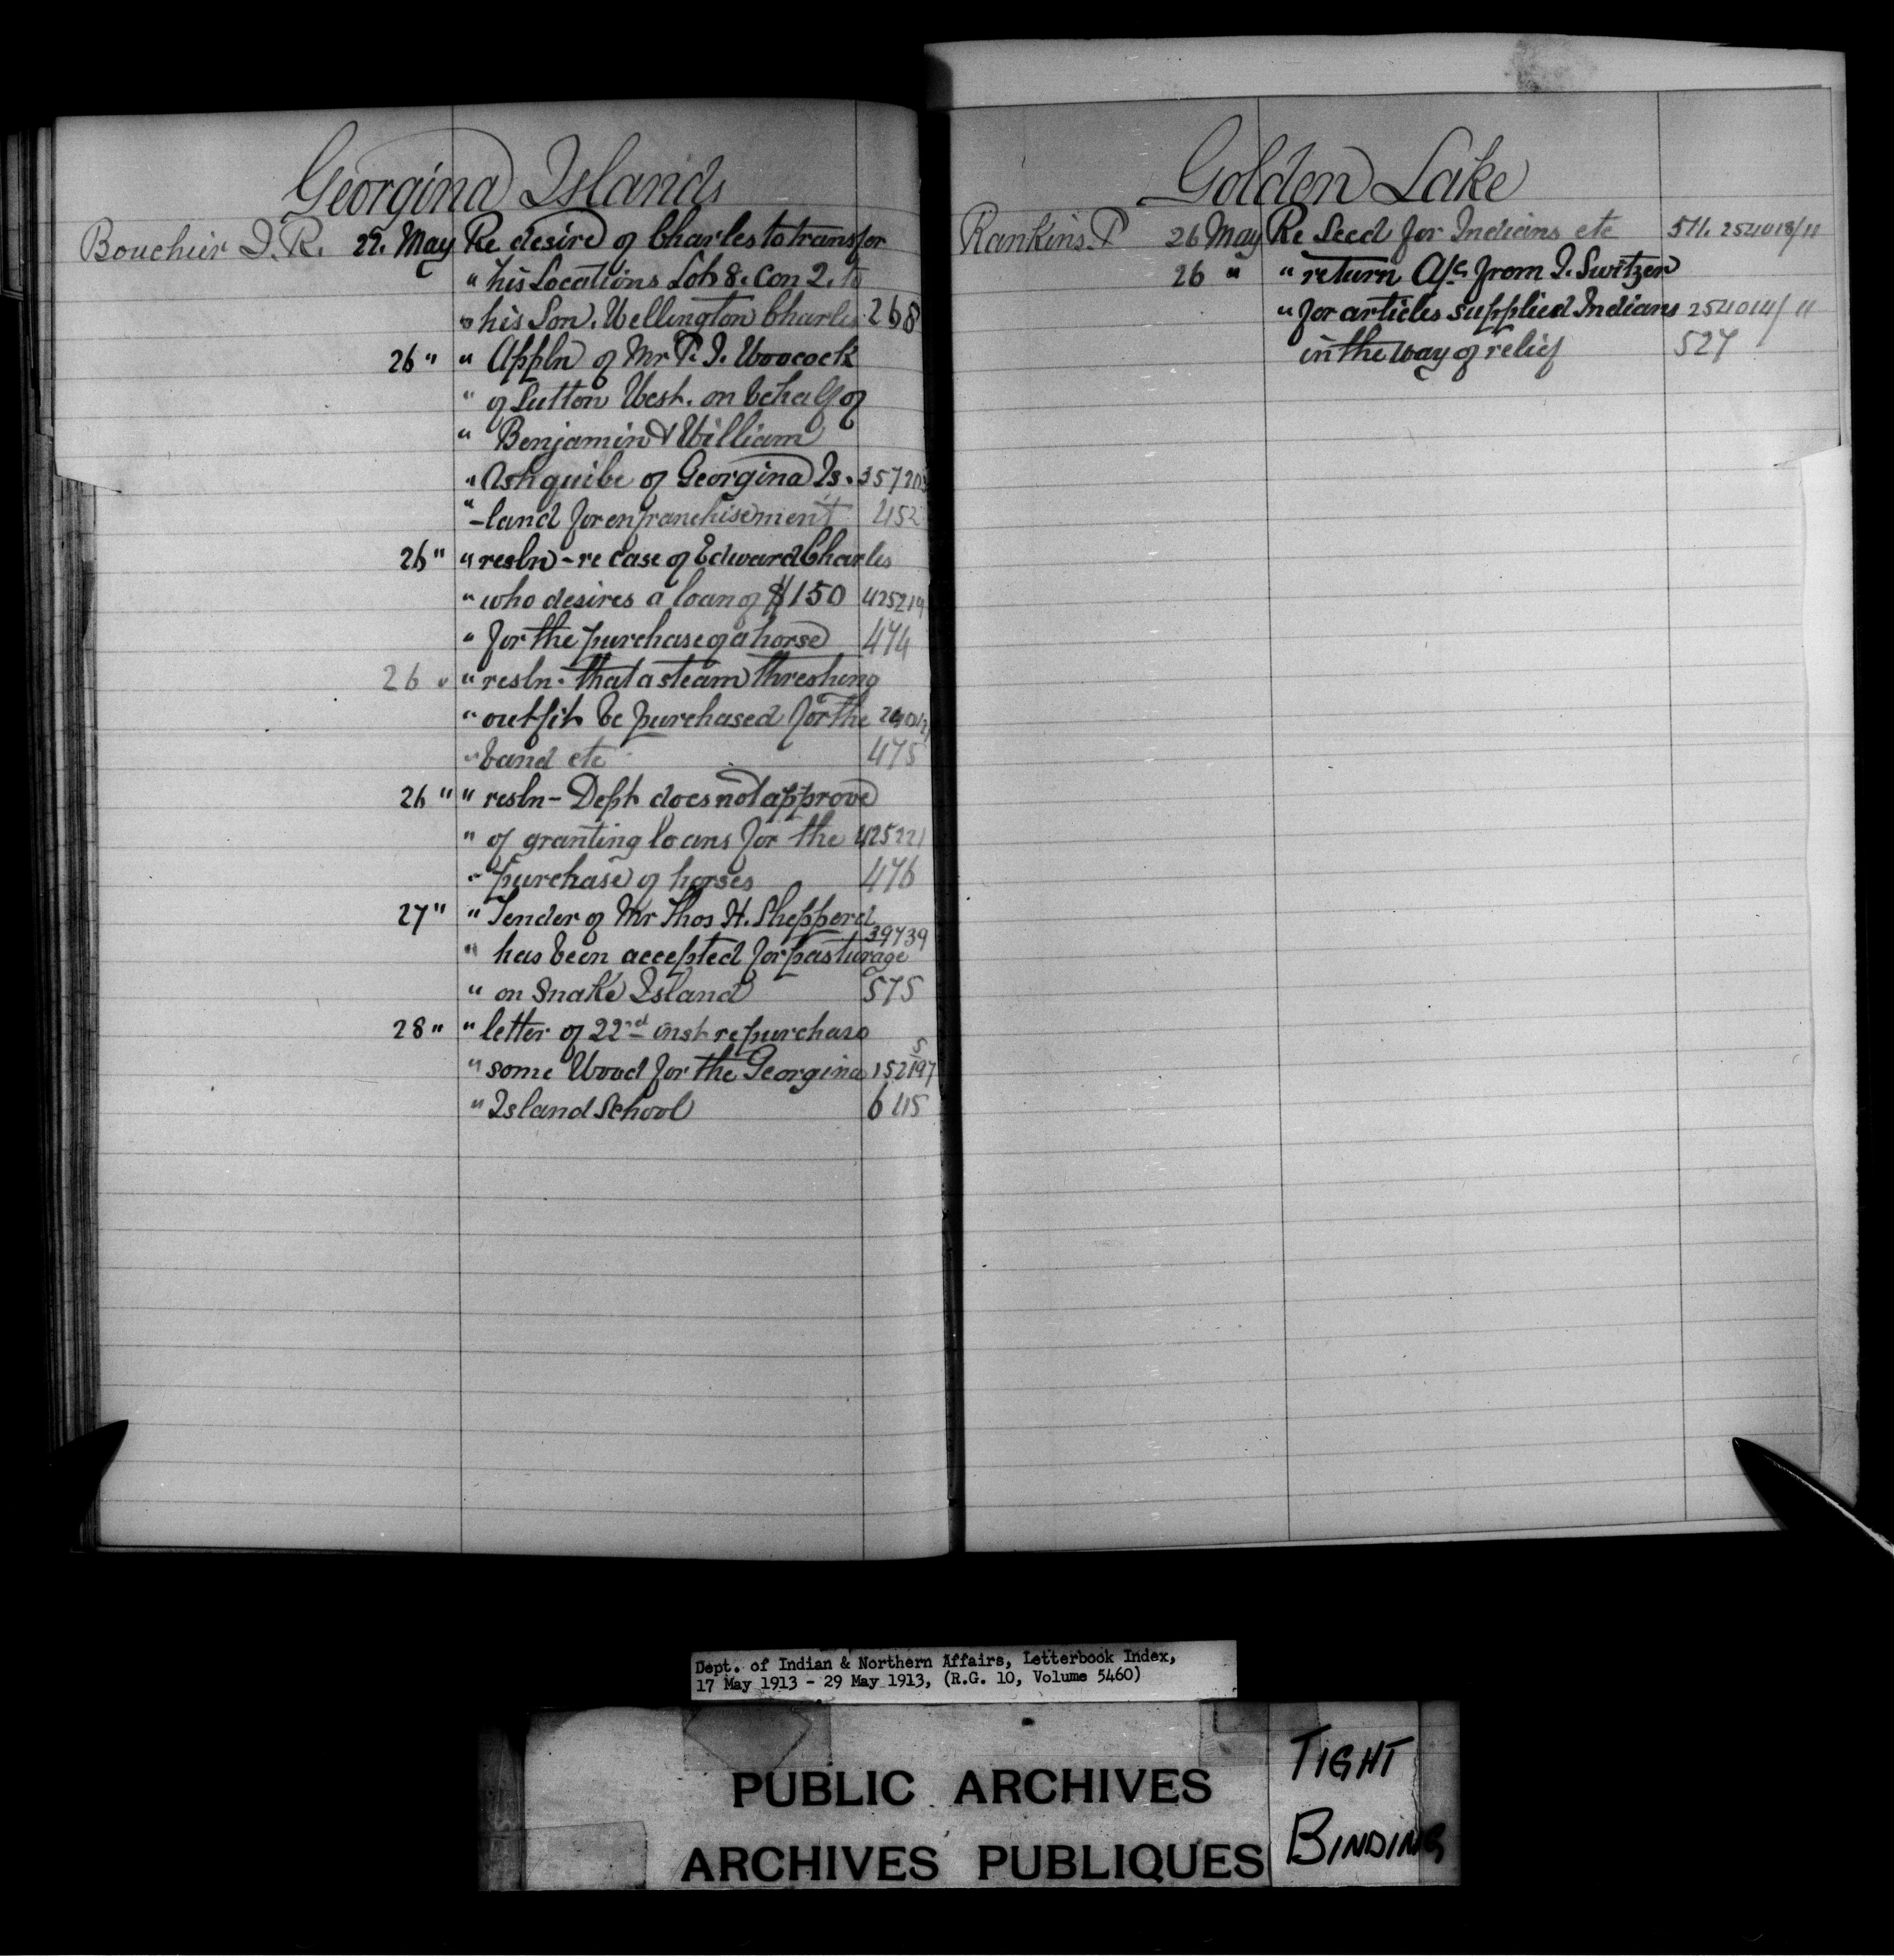 Georgina Islands
Bouchier J. R. 22. May Re desire of Charles to transfer
" his Locations Lot 8. Con 2. to
" his Son. Wellington Charles 268
26 " " Appln of Mr T. J. Woocock
" of Sutton West. on behalf of
" Benjamin & William
" Ashquibe of Georgina Is. 357203
" -land for enfranchisement 452
26 " " resln - re case of Edward Charles
" who desires a loan of $150 425219
" for the purchase of a horse 474
26 " " resln. that a steam threshing
" outfit be purchased for the
" band etc 475
26 " " resln - Dept does not approve
" of granting loans for the 425221
" purchase of horses 476
27 " " Tender of Mr Thos H. Shepperd
39739
" has been accepted for pasturage
" on Snake Island 575
28 " " letter of 22nd inst re purchase
" some Wood for the Georgina 152197
5
" Island School 645
Golden Lake
Rankins. P 26 May Re Seed for Indians etc 511. 254018/11
26 " " return A/c from J. Switzer
" for articles supplied Indians 254014/11
in the way of relief 527
Dept. of Indian & Northern Affairs, Letterbook Index,
17 May 1913 - 29 May 1913, (R.G. 10, Volume 5460)
PUBLIC ARCHIVES
ARCHIVES PUBLIQUES
TIGHT
BINDING